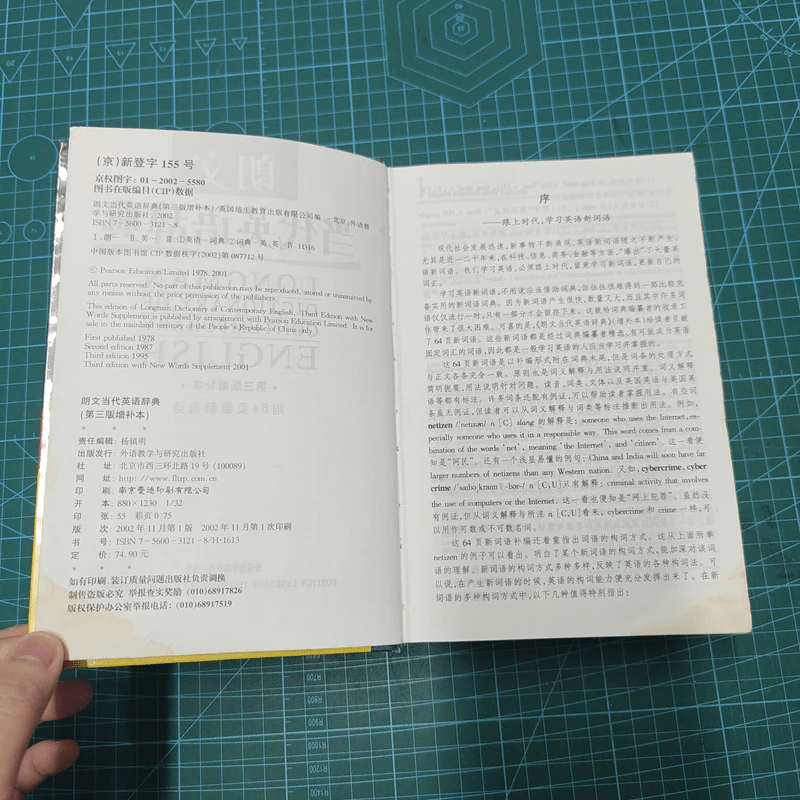 (京)新登字 155 号
京权图字：01－2002－5580
图书在版编目(CIP)数据
朗文当代英语辞典(第三版增补本)/英国培生教育出版有限公司编．北京：外语教
学与研究出版社，2002
ISBN 7－5600－3121－8
Ⅰ.朗… Ⅱ.英… Ⅲ.①英语－词典②词典－英、英 Ⅳ.H316
中国版本图书馆 CIP 数据核字(2002)第 087712 号
© Pearson Education Limited 1978, 2001
All parts reserved. No part of this publication may be reproduced, stored or transmitted by
any means without the prior permission of the publishers.
This edition of Longman Dictionary of Contemporary English, Third Edition with New
Words Supplement is published by arrangement with Pearson Education Limited. It is for
sale in the mainland territory of the People's Republic of China only.
First published 1978
Second edition 1987
Third edition 1995
Third edition with New Words Supplement 2001
朗文当代英语辞典
(第三版增补本)
* * *
责任编辑：杨镇明
出版发行：外语教学与研究出版社
社 址：北京市西三环北路 19 号 (100089)
网 址：http://www.fltrp.com.cn
印 刷：南京爱德印刷有限公司
开 本：880×1230 1/32
印 张：55 彩页 0.75
版 次：2002 年 11 月第 1 版 2002 年 11 月第 1 次印刷
书 号：ISBN 7－5600－3121－8/H·1613
定 价：74.90 元
* * *
如有印刷、装订质量问题出版社负责调换
制售盗版必究 举报查实奖励 (010)68917826
版权保护办公室举报电话：(010)68917519
序
——跟上时代，学习英语新词语
现代社会发展迅速，新事物不断涌现，英语新词语随之不断产生。
尤其是近一二十年来，在科技、信息、商务、金融等方面，"爆出"了大量英
语新词语。我们学习英语，必须跟上时代，留意学习新词语，更新自己的
词汇。
学习英语新词语，不用说应当借助词典，但往往很难得到一部比较完
备实用的新词语词典。因为新词语产生很快，数量又大，而且其中许多词
语仅仅流行一时，只有一部分才会留存下来。这就给词典编纂者的收录工
作带来了很大困难。可喜的是，《朗文当代英语辞典》(增补本)给读者呈献
了 64 页新词语。这些新词语都是经过词典编纂者精选、有可能成为英语
固定词汇的词语，因此都是一般学习英语的人应当学习并掌握的。
这 64 页新词语是以补编形式附在词典末尾，但是词条的处理方式
与正文各条完全一致。原则也是词义解释与用法说明并重。词义解释
简明扼要，用法说明针对问题。读音、词类、文体以及英国英语与美国英
语等都有标注。许多词条还配有例证，可以帮助读者掌握用法。有些词
条虽无例证，但读者可以从词义解释与词类等标注推断出用法。例如，
netizen /ˈnetɪzən/ n [C] slang 的解释是：someone who uses the Internet, es-
pecially someone who uses it in a responsible way. This word comes from a com-
bination of the words 'net', meaning 'the Internet', and 'citizen'. 这一看便
知是"网民"。还有一个浅显易懂的例句：China and India will soon have far
larger numbers of netizens than any Western nation. 又如，cybercrime, cyber
crime /ˈsaɪbəˌkraɪm ‖ -bər-/ n [C,U] 只有解释：criminal activity that involves
the use of computers or the Internet. 这一看也便知是"网上犯罪"。虽然没
有例证，但从词义解释与所注 n [C,U] 看来，cybercrime 和 crime 一样，可
以用作可数或不可数名词。
这 64 页新词语补编还着重指出词语的构词方式。这从上面所举
netizen 的例子可以看出。明白了某个新词语的构词方式，能加深对该词
语的理解。新词语的构词方式多种多样，反映了英语的各种构词法。可
以说，在产生新词语的时候，英语的构词能力便充分发挥出来了。在新
词语的多种构词方式中，以下几种值得特别指出：